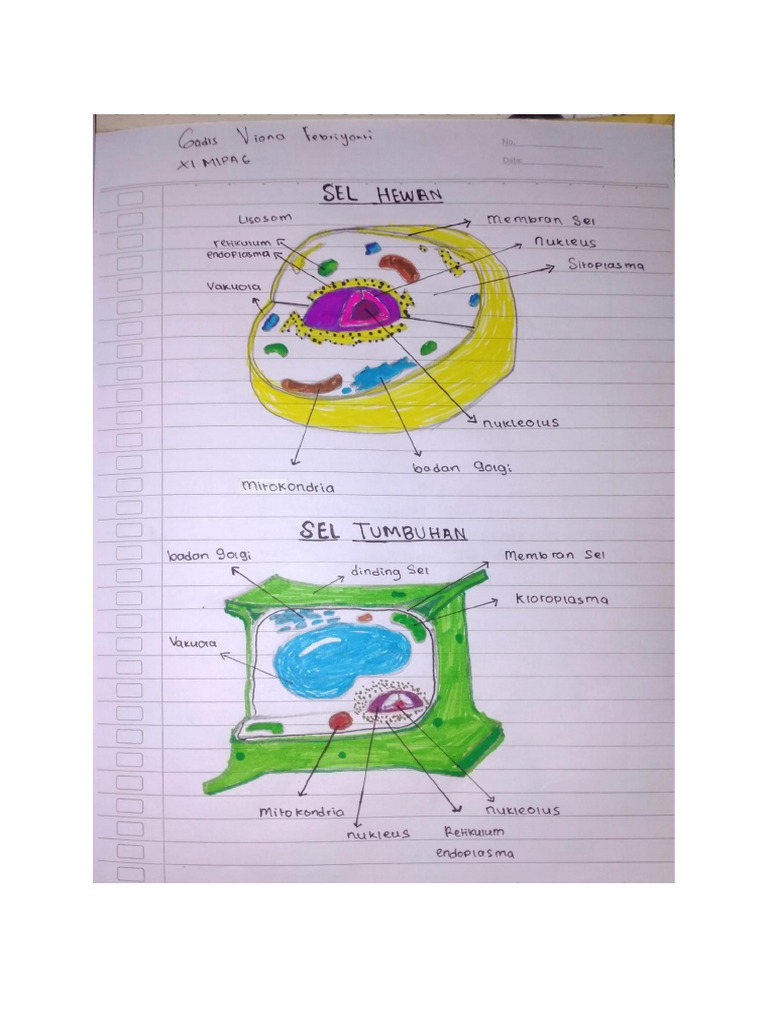 Gadis Viona Febriyanti
No.
XI MIPA 6
Date:
SEL HEWAN
Lisosom
Membran Sel
retikulum
endoplasma
nukleus
Sitoplasma
Vakuola
nukleolus
badan golgi
Mitokondria
SEL TUMBUHAN
badan golgi
Membran Sel
dinding Sel
Kloroplasma
Vakuola
Mitokondria
nukleolus
nukleus
Retikulum
endoplasma